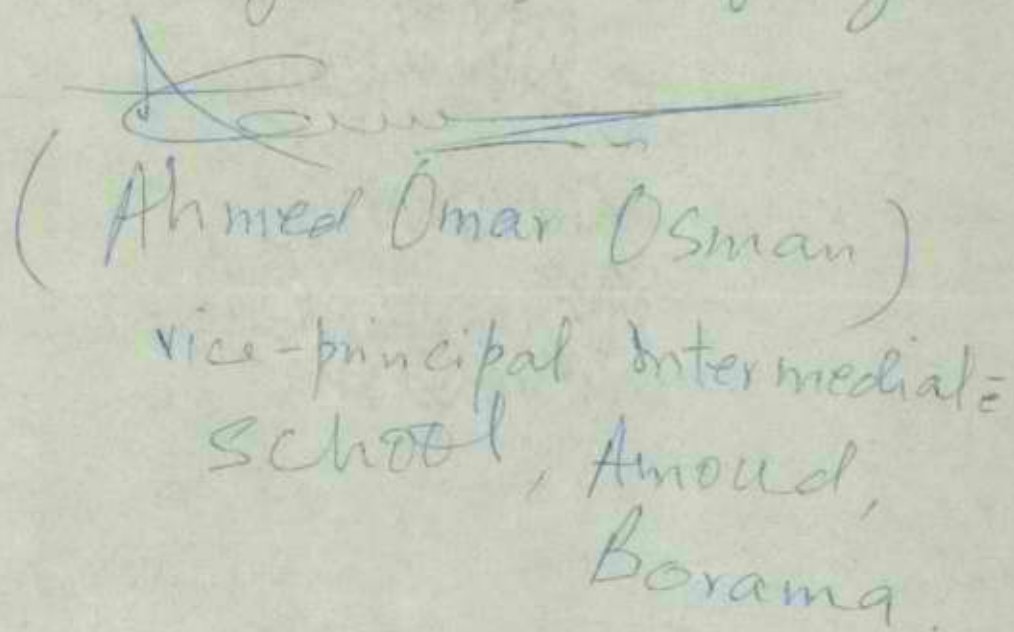 (Ahmed Omar Osman)
vice-principal Intermediate
School, Amoud,
Borama.